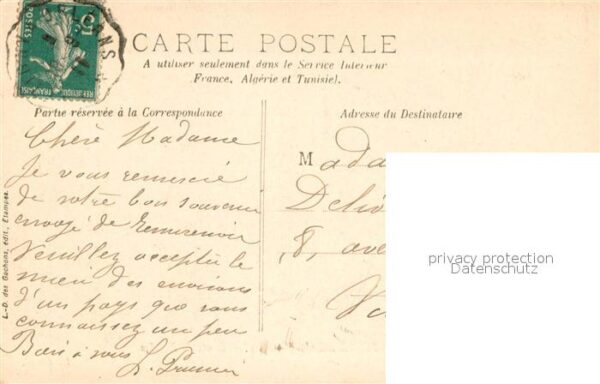 CARTE POSTALE
A utiliser seulement dans le Service Intérieur
(France, Algérie et Tunisie).
Partie réservée à la Correspondance
Chère Madame
Je vous remercie
de votre bon souvenir
envoyé de
Veuillez accepter le
mien des environs
d'un pays que vous
connaissez un peu
à vous
Adresse du Destinataire
Mada
8, ave
L.-D. des Gachons, édit., Etampes
5c
POSTES
REPUBLIQUE
FRANÇAISE
privacy protection
Datenschutz